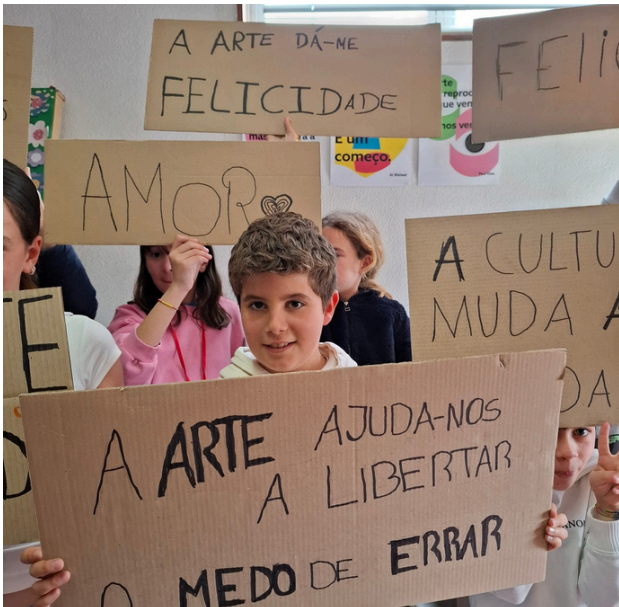 A ARTE DÁ-ME
FELICIDADE
FELIC
AMOR
É um
começo.
A CULTU
MUDA A
DA
E
D
A ARTE AJUDA-NOS
A LIBERTAR
O MEDO DE ERRAR